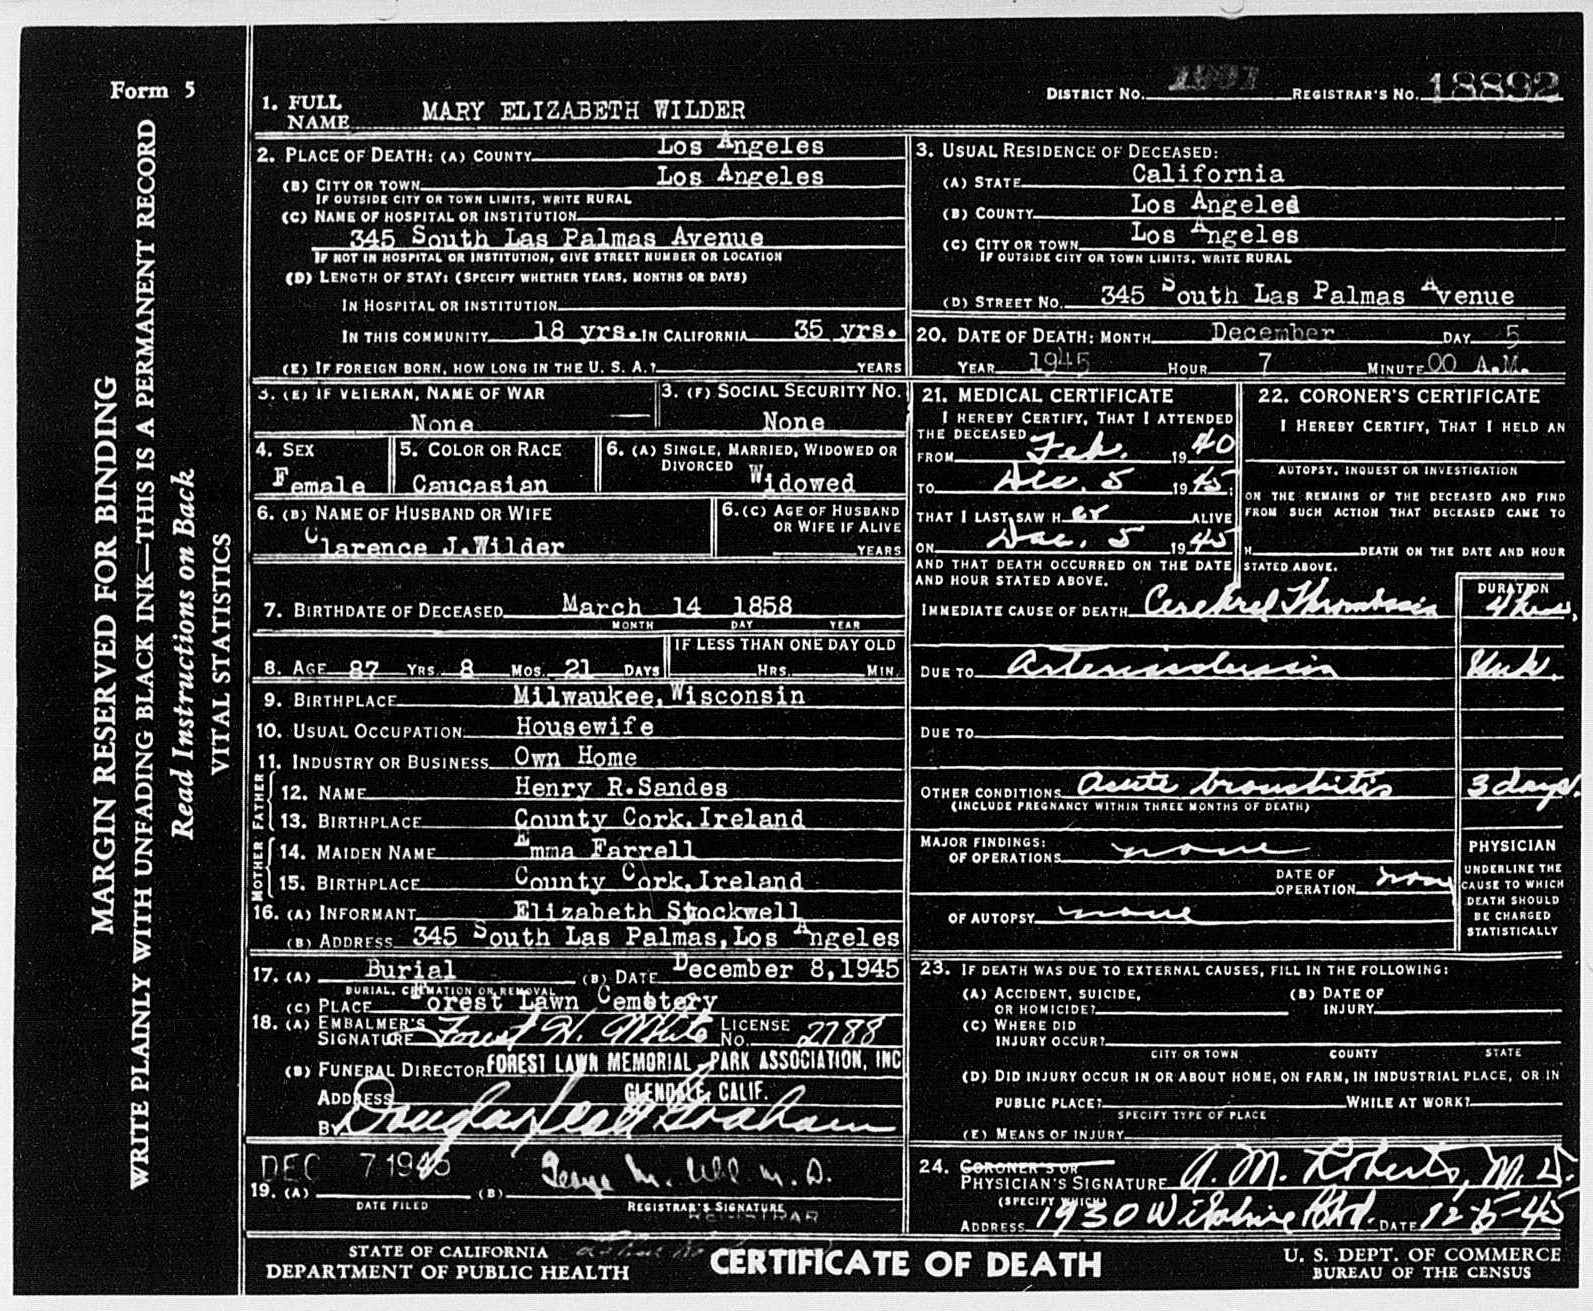 Form 5
MARGIN RESERVED FOR BINDING
WRITE PLAINLY WITH UNFADING BLACK INK—THIS IS A PERMANENT RECORD
Read Instructions on Back
VITAL STATISTICS
1. FULL NAME MARY ELIZABETH WILDER
DISTRICT NO. 1901 REGISTRAR'S NO. 18892
2. PLACE OF DEATH: (A) COUNTY Los Angeles
(B) CITY OR TOWN Los Angeles
IF OUTSIDE CITY OR TOWN LIMITS, WRITE RURAL
(C) NAME OF HOSPITAL OR INSTITUTION
345 South Las Palmas Avenue
IF NOT IN HOSPITAL OR INSTITUTION, GIVE STREET NUMBER OR LOCATION
(D) LENGTH OF STAY: (SPECIFY WHETHER YEARS, MONTHS OR DAYS)
IN HOSPITAL OR INSTITUTION
IN THIS COMMUNITY 18 yrs. IN CALIFORNIA 35 yrs.
(E) IF FOREIGN BORN, HOW LONG IN THE U. S. A.? YEARS
3. USUAL RESIDENCE OF DECEASED:
(A) STATE California
(B) COUNTY Los Angeled
(C) CITY OR TOWN Los Angeles
IF OUTSIDE CITY OR TOWN LIMITS, WRITE RURAL
(D) STREET NO. 345 South Las Palmas Avenue
20. DATE OF DEATH: MONTH December DAY 5
YEAR 1945 HOUR 7 MINUTE 00 A.M.
3. (E) IF VETERAN, NAME OF WAR
None
3. (F) SOCIAL SECURITY NO.
None
4. SEX
Female
5. COLOR OR RACE
Caucasian
6. (A) SINGLE, MARRIED, WIDOWED OR
DIVORCED Widowed
6. (B) NAME OF HUSBAND OR WIFE
Clarence J.Wilder
6. (C) AGE OF HUSBAND
OR WIFE IF ALIVE
YEARS
7. BIRTHDATE OF DECEASED March 14 1858
MONTH DAY YEAR
8. AGE 87 YRS. 8 MOS. 21 DAYS
IF LESS THAN ONE DAY OLD
HRS. MIN.
9. BIRTHPLACE Milwaukee, Wisconsin
10. USUAL OCCUPATION Housewife
11. INDUSTRY OR BUSINESS Own Home
FATHER
12. NAME Henry R.Sandes
13. BIRTHPLACE County Cork, Ireland
MOTHER
14. MAIDEN NAME Emma Farrell
15. BIRTHPLACE County Cork, Ireland
16. (A) INFORMANT Elizabeth Stockwell
(B) ADDRESS 345 South Las Palmas, Los Angeles
17. (A) Burial (B) DATE December 8,1945
BURIAL, CREMATION OR REMOVAL
(C) PLACE Forest Lawn Cemetery
18. (A) EMBALMER'S
SIGNATURE Forest H. White LICENSE NO. 2788
(B) FUNERAL DIRECTOR FOREST LAWN MEMORIAL-PARK ASSOCIATION, INC
ADDRESS GLENDALE, CALIF.
BY Douglas Graham
DEC 7 1945
19. (A) (B) George M. Uhl M. D.
DATE FILED REGISTRAR'S SIGNATURE
REGISTRAR
21. MEDICAL CERTIFICATE
I HEREBY CERTIFY, THAT I ATTENDED
THE DECEASED
FROM Feb. 1940
TO Dec. 5 1945;
THAT I LAST SAW H er ALIVE
ON Dec. 5 1945
AND THAT DEATH OCCURRED ON THE DATE
AND HOUR STATED ABOVE.
22. CORONER'S CERTIFICATE
I HEREBY CERTIFY, THAT I HELD AN
AUTOPSY, INQUEST OR INVESTIGATION
ON THE REMAINS OF THE DECEASED AND FIND
FROM SUCH ACTION THAT DECEASED CAME TO
H DEATH ON THE DATE AND HOUR
STATED ABOVE.
DURATION
IMMEDIATE CAUSE OF DEATH Cerebral Thrombosis 4 hrs.
DUE TO Arteriosclerosis Unk.
DUE TO
OTHER CONDITIONS acute bronchitis 3 days.
(INCLUDE PREGNANCY WITHIN THREE MONTHS OF DEATH)
MAJOR FINDINGS:
OF OPERATIONS none
DATE OF
OPERATION none
OF AUTOPSY none
PHYSICIAN
UNDERLINE THE
CAUSE TO WHICH
DEATH SHOULD
BE CHARGED
STATISTICALLY
23. IF DEATH WAS DUE TO EXTERNAL CAUSES, FILL IN THE FOLLOWING:
(A) ACCIDENT, SUICIDE,
OR HOMICIDE?
(B) DATE OF
INJURY
(C) WHERE DID
INJURY OCCUR?
CITY OR TOWN COUNTY STATE
(D) DID INJURY OCCUR IN OR ABOUT HOME, ON FARM, IN INDUSTRIAL PLACE, OR IN
PUBLIC PLACE? WHILE AT WORK?
SPECIFY TYPE OF PLACE
(E) MEANS OF INJURY
24. CORONER'S OR
PHYSICIAN'S SIGNATURE A. M. Roberts, M. D.
(SPECIFY WHICH)
ADDRESS 1930 Wilshire Blvd. DATE 12-5-45
STATE OF CALIFORNIA
DEPARTMENT OF PUBLIC HEALTH
CERTIFICATE OF DEATH
U. S. DEPT. OF COMMERCE
BUREAU OF THE CENSUS